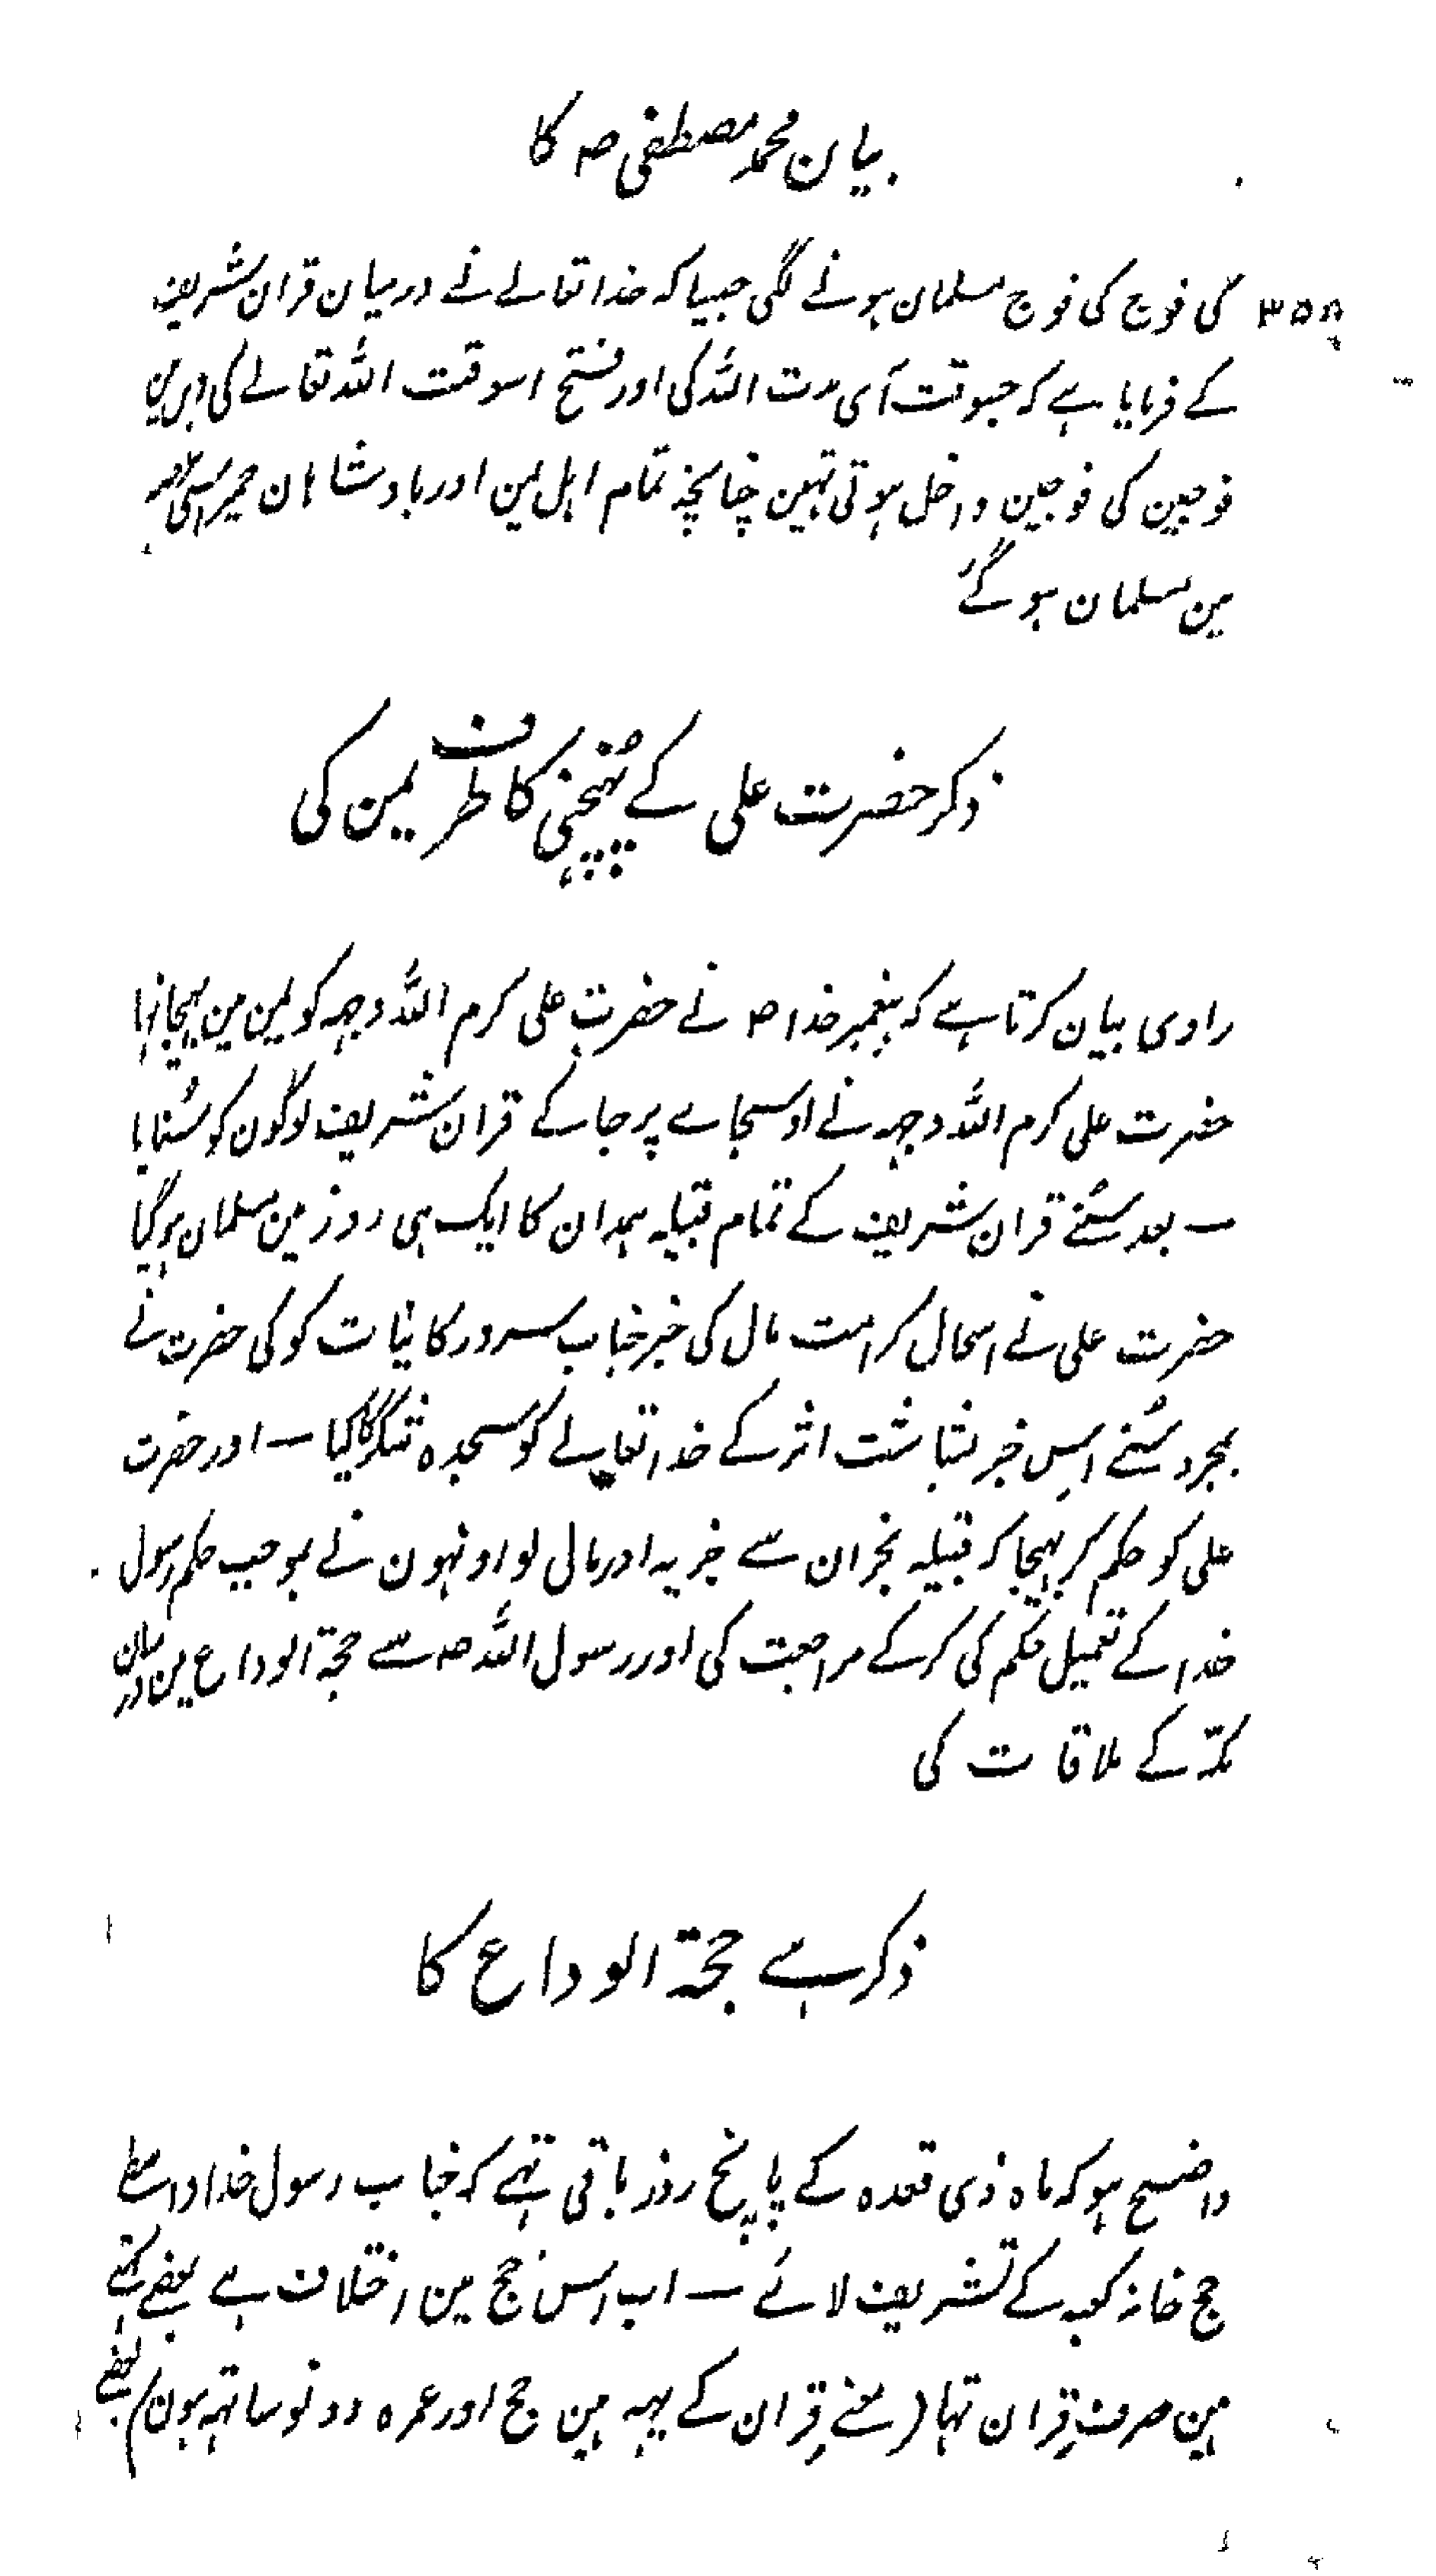 بیان محمد مصطفی ص کا
۳۵۸ کی فوج کی فوج مسلمان ہونے لگی جیسا کہ خدا تعالے نے درمیان قران شریف
کے فرمایا ہے کہ جسوقت آی مدت اللہ کی اور فتح اسوقت اللہ تعالے کی دین
فوجین کی فوجین داخل ہوتی تہین چنانچہ تمام اہل یمن اور بادشاہان حمیر اسی
مین مسلمان ہو گئے
ذکر حضرت علی کے پہنچنی کا طرف یمن کی
راوی بیان کرتا ہے کہ پیغمبر خدا ص نے حضرت علی کرم اللہ وجہہ کو یمن مین بہیجا تہا
حضرت علی کرم اللہ وجہہ نے اوسجاے پر جا کے قران شریف لوگون کو سُنایا
ــ بعد سُننے قران شریف کے تمام قبیلہ ہمدان کا ایک ہی روز مین مسلمان ہو گیا
حضرت علی نے اسحال کرامت مال کی خبر جناب سرور کاینات کو کی حضرت نے
بمجرد سُننے اس خبر بشاشت اثر کے خدا تعالے کو سجدہ شکر کا کیا ــ اور حضرت
علی کو حکم کر بہیجا کہ قبیلہ نجران سے جزیہ اور مال لو اونہون نے بموجب حکم رسول
خدا کے تعمیل حکم کی کر کے مراجعت کی اور رسول اللہ ص سے حجۃ الوداع مین درمیان
مکّہ کے ملاقات کی
ذکر ہے حجۃ الوداع کا
واضح ہو کہ ماہ ذی قعدہ کے پانچ روز باقی تہے کہ جناب رسول خدا واسطے
حج خانہ کعبہ کے تشریف لائے ــ اب اس حج مین اختلاف ہے بعضے کہتے
ہین صرف قِران تہا (معنے قِران کے یہہ ہین حج اور عمرہ دونو ساتہہ ہون) بعضے